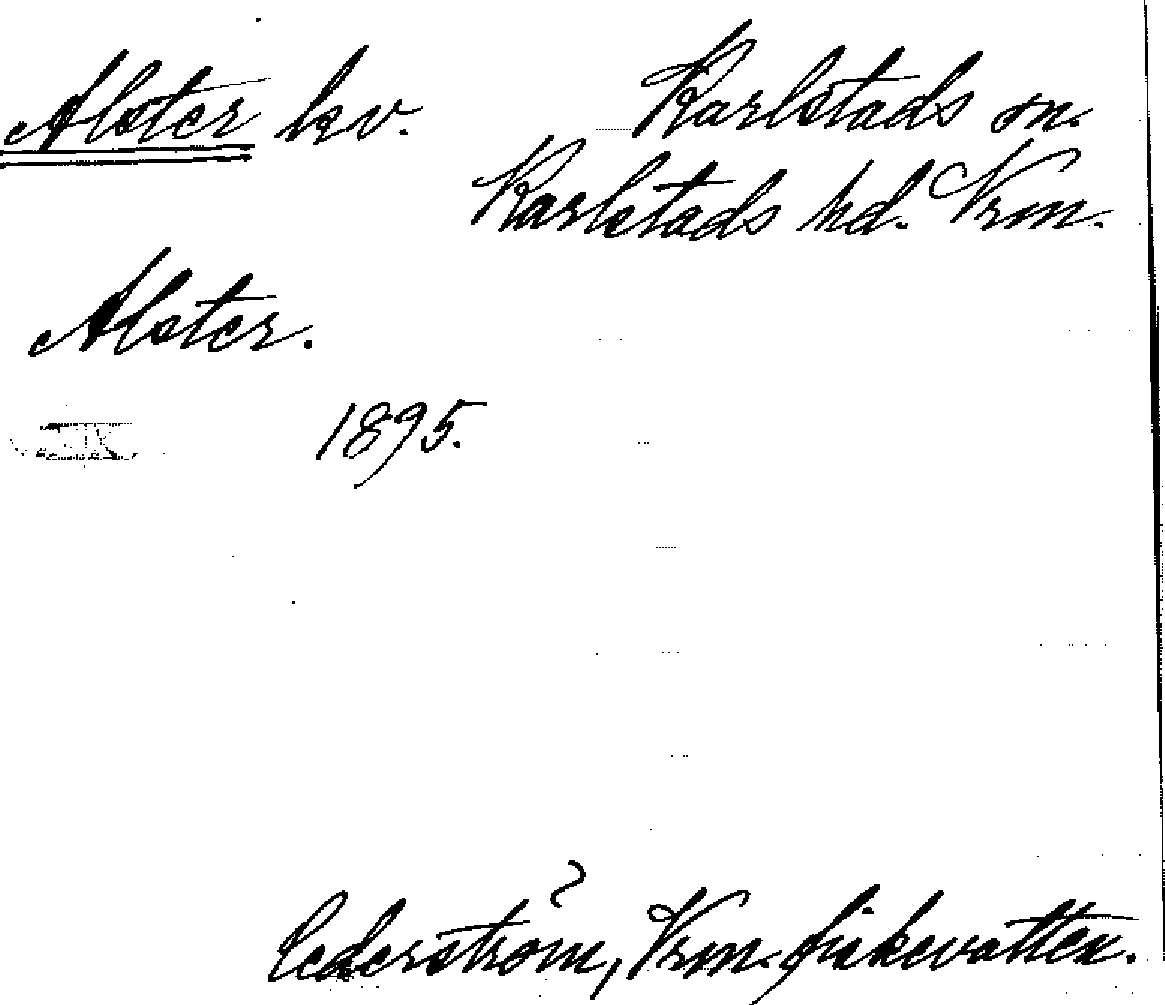 Alster kv. Karlstads sn.
Karlstads hd. Vrm.
Alster.
1895.
Cederström, Vrm. fiskevatten.